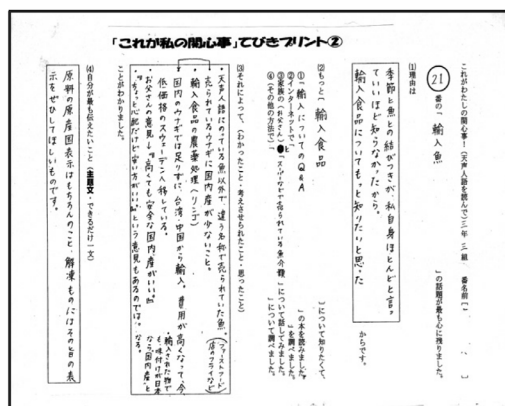 「これが私の関心事」てびきプリント②
これがわたしの関心事!(天声人語を読んで)三年 三組 番名前(
21番の「輸入魚」の話題が最も心に残りました。
(1)理由は
季節と魚との結びつきが私自身ほとんどと言っ
ていいほど知らなかったから。
輸入食品についてもっと知りたいと思った
からです。
(2)もっと〔輸入食品〕について知りたくて、
①「輸入についてのQ&A」の本を読みました。
②インターネットで「」を調べました。
③家族の(お父さん)「スーパーなどで売られている魚介類」について話してみました。
④(その他の方法で)「」について調べました。
(3)それによって、(わかったこと・考えさせられたこと・思ったこと)
・天声人語にのっている魚以外で、違う名称で売られていた魚。
(ファーストフード店のフライなど)
売られているウナギに国内産が少ないこと。
・輸入食品の農薬処理
・国内のウナギでは足りずに、台湾、中国から輸入。費用が高くなって、今、
低価格のスウェーデンへ移している。
・お父さんの意見→「高くても安全な国内産がいい。」
・輸入された物でも、味付けが日本なら「国内産」となる。
"ちょっと心配だけど安い方がいい"という意見もあるのでは。
ことがわかりました。
(4)自分が最も伝えたいこと(主題文・できるだけ一文)
原料の原産国表示はもちろんのこと、解凍ものにはその旨の表
示をぜひしてほしいものです。